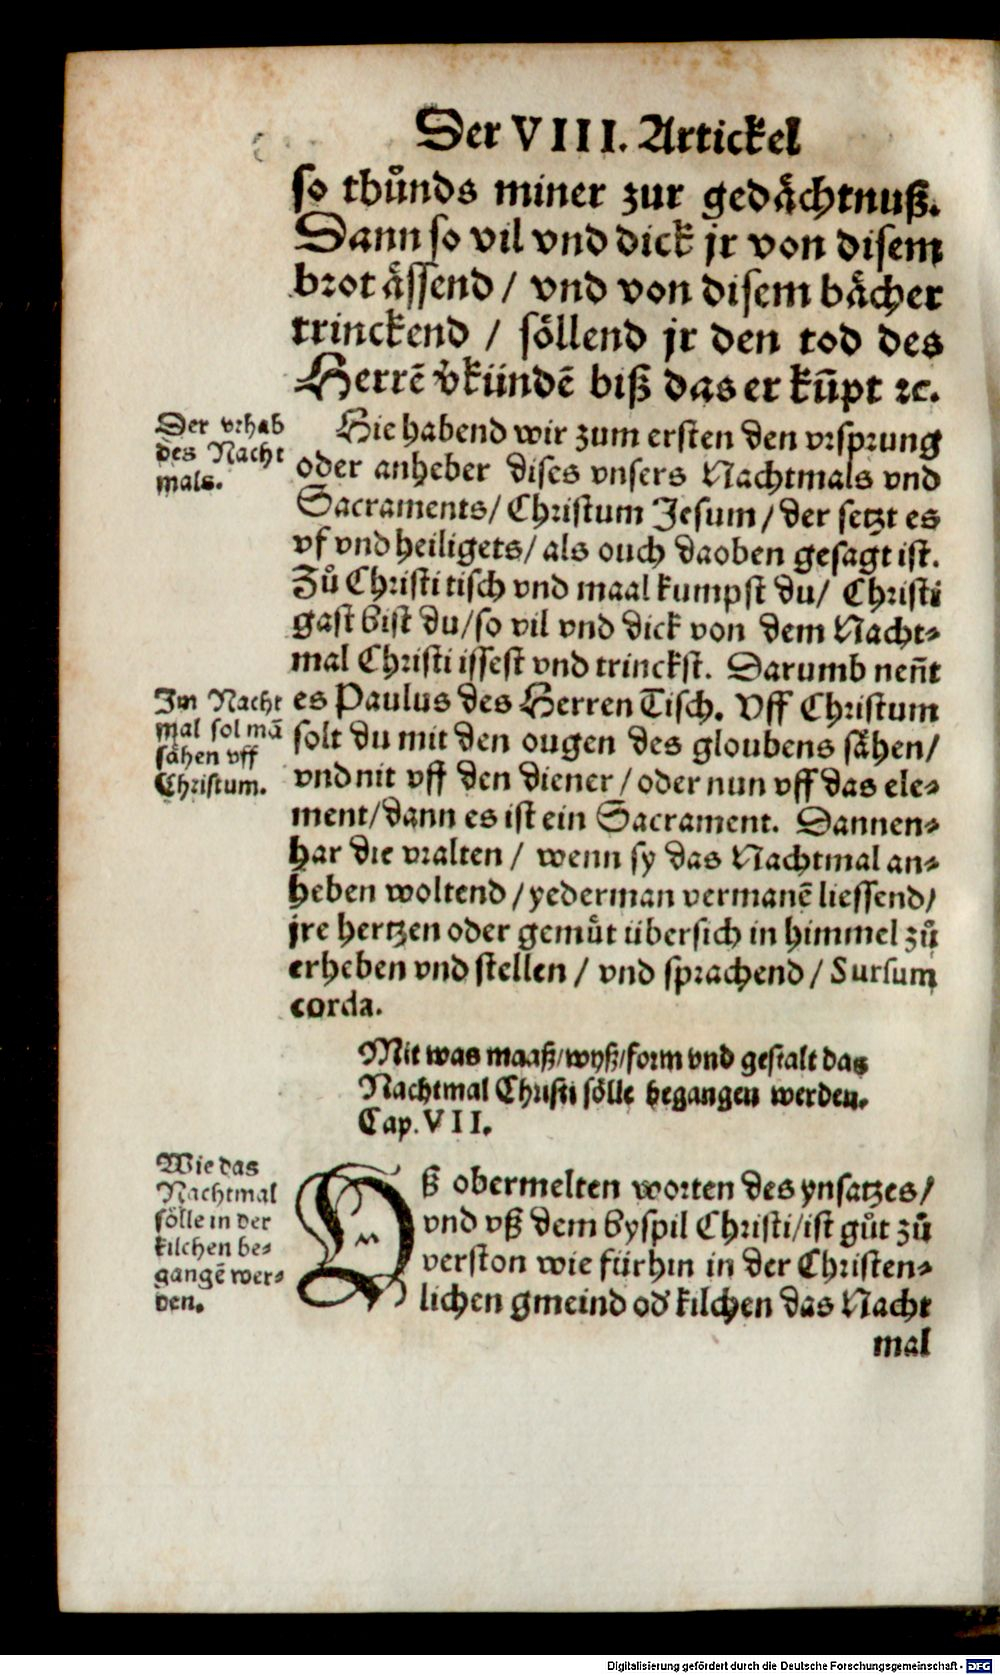 Der VIII. Artickel
so thůnds miner zur gedaͤchtnuß.
Dann so vil vnd dick jr von disem
brot aͤssend / vnd von disem baͤcher
trinckend / soͤllend jr den tod des
Herrẽ v̓kündẽ biß das er kũpt ꝛc.
Der vrhab
des Nacht
mals.
Hie habend wir zum ersten den vrsprung
oder anheber dises vnsers Nachtmals vnd
Sacraments / Christum Jesum / der setzt es
vf vnd heiligets / als ouch daoben gesagt ist.
Zů Christi tisch vnd maal kumpst du / Christi
gast bist du / so vil vnd dick von dem Nacht⸗
mal Christi issest vnd trinckst. Darumb neñt
Im Nacht
mal sol mã
saͤhen vff
Christum.
es Paulus des Herren Tisch. Vff Christum
solt du mit den ougen des gloubens saͤhen /
vnd nit vff den diener / oder nun vff das ele⸗
ment / dann es ist ein Sacrament. Dannen⸗
har die vralten / wenn sy das Nachtmal an⸗
heben woltend / yederman vermanẽ liessend /
jre hertzen oder gemuͤt übersich in himmel zů
erheben vnd stellen / vnd sprachend / Sursum
corda.
Mit was maaß / wyß / form vnd gestalt das
Nachtmal Christi soͤlle begangen werden.
Cap. VII.
Wie das
Nachtmal
soͤlle in der
kilchen be⸗
gangẽ wer⸗
den.
Vß obermelten worten des ynsatzes /
vnd vß dem byspil Christi / ist gůt zů
verston wie fürhin in der Christen⸗
lichen gmeind od' kilchen das Nacht
mal
Digitalisierung gefördert durch die Deutsche Forschungsgemeinschaft - DFG